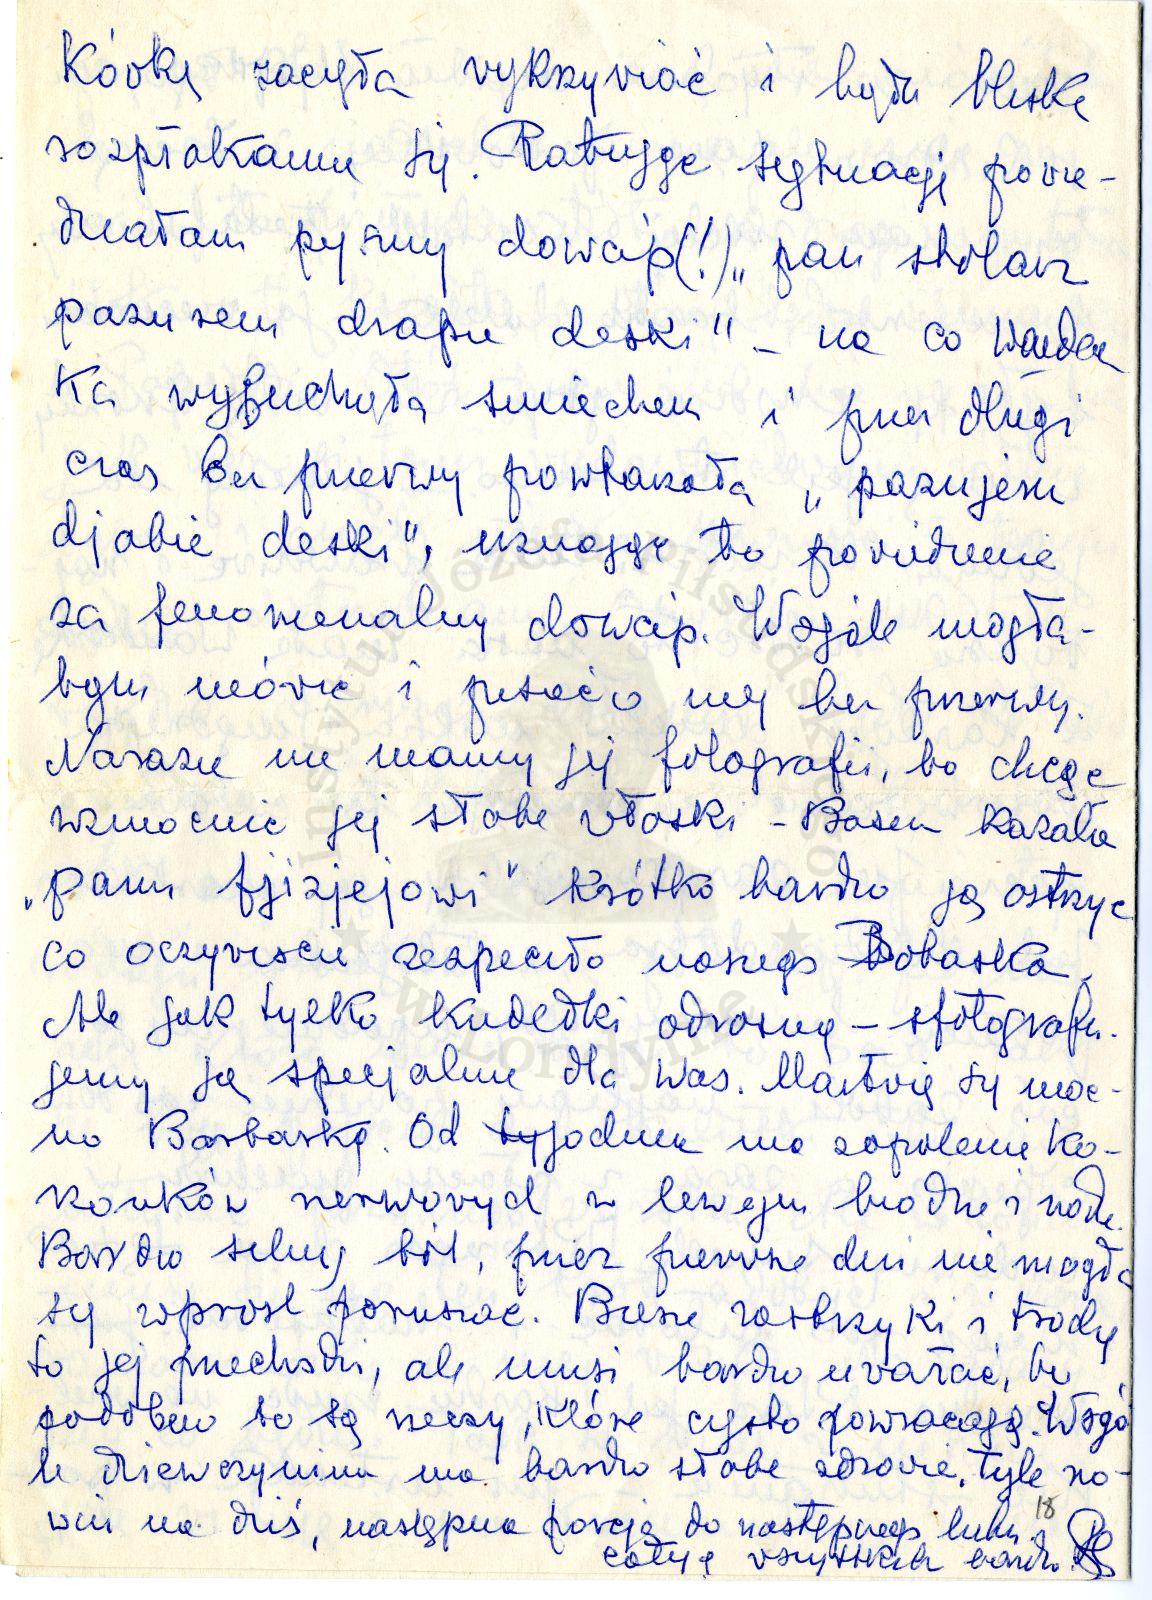 kówkę zaczęła wykrzywiać i była bliska
rozpłakania się. Ratując sytuację powie-
działam pyszny dowcip(!) „pan stolarz
pazurem drapie deski" – na co Wandecz
ka wybuchnęła śmiechem i przez długi
czas bez przerwy powtarzała „pazujem
djabie deski", uznając to powiedzenie
za fenomenalny dowcip. Wogóle mogła-
bym mówić i pisać o niej bez przerwy.
Narazie nie mamy jej fotografii, bo chcąc
wzmocnić jej słabe włoski – Basia kazała
„panu fjizjejowi" krótko bardzo ją ostrzyc
co oczywiście zeszpeciło naszego Bobaska.
Ale jak tylko kudełki odrosną – sfotografu-
jemy ją specjalnie dla Was. Martwię się moc-
no Barbaską. Od tygodnia ma zapalenie ko-
rzonków nerwowych w lewym biodrze i nodze.
Bardzo silny ból, przez pierwsze dni nie mogła
się wprost poruszać. Bierze zastrzyki i
to jej przechodzi, ale musi bardzo uważać, bo
podobno to są rzeczy, które często powracają. Wogó
le dziewczynina ma bardzo słabe zdrowie. Tyle no-
win na dziś, następna porcja do następnego listu
18
całuję wszystkich bardzo
Instytut Józefa Piłsudskiego
w Londynie